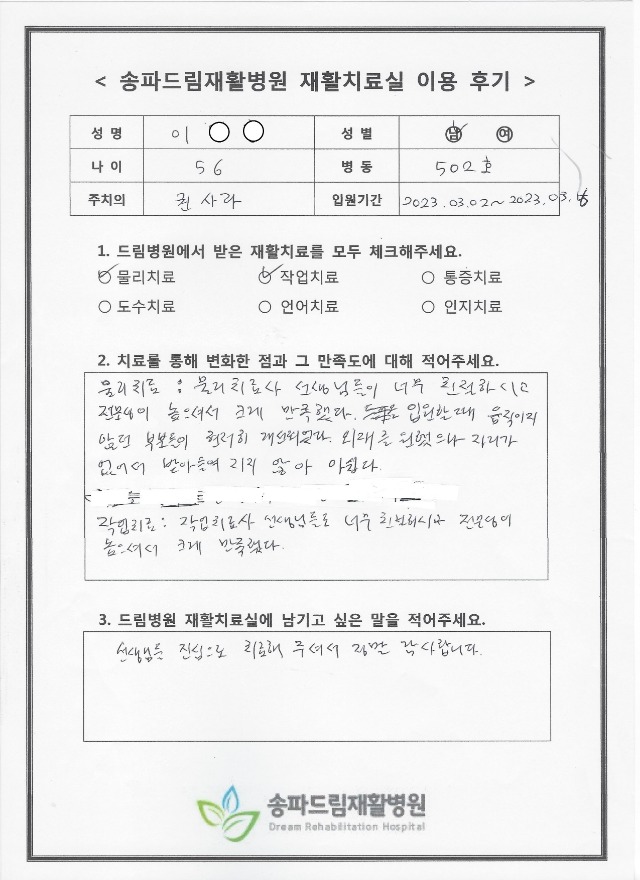 < 송파드림재활병원 재활치료실 이용 후기 >
성 명 이○○ 성 별 남 여
나 이 56 병 동 502호
주치의 권사라 입원기간 2023.03.02~2023.03.16
1. 드림병원에서 받은 재활치료를 모두 체크해주세요.
물리치료 작업치료 통증치료
도수치료 언어치료 인지치료
2. 치료를 통해 변화한 점과 그 만족도에 대해 적어주세요.
물리치료 : 물리치료사 선생님들이 너무 친절하시고
전문성이 높으셔서 크게 만족했다. 입원할때 움직이지
않던 부분들이 현저히 개선되었다. 외래를 원했으나 자리가
없어서 받아들여지지 않아 아쉽다.
작업치료: 작업치료사 선생님들도 너무 친절하시고 전문성이
높으셔서 크게 만족했다.
3. 드림병원 재활치료실에 남기고 싶은 말을 적어주세요.
선생님들 진심으로 치료해 주셔서 정말 감사합니다.
송파드림재활병원
Dream Rehabilitation Hospital